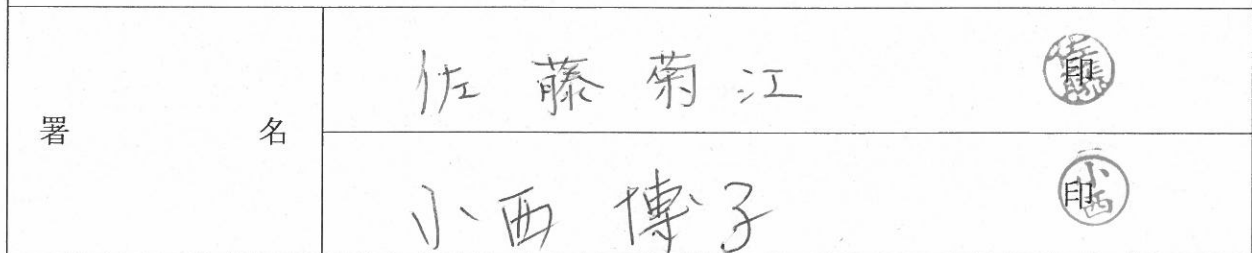 署名
佐藤菊江 印 佐藤
小西博子 印 小西